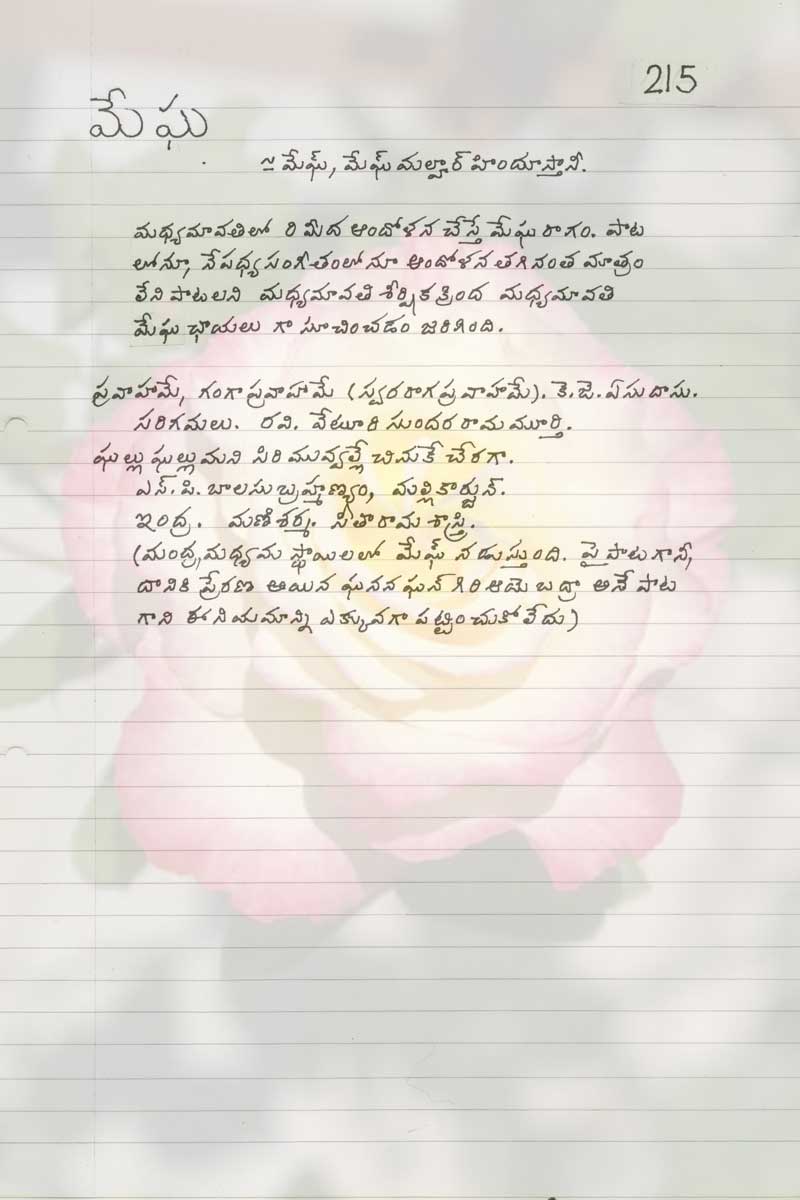 215
మేఘ
≃ మేఘ్, మేఘ్ మల్హార్ హిందూస్తానీ.
మధ్యమావతిలో రి మీద ఆందోళన చేస్తే మేఘ రాగం. పాట
లోనూ, నేపధ్య సంగీతంలోనూ ఆందోళన తగినంత మాత్రం
లేని పాటలని మధ్యమావతి శీర్షిక క్రింద మధ్యమావతి
మేఘ ఛాయలు గా సూచించడం జరిగింది.
ప్రవాహమే, గంగా ప్రవాహమే (స్వర రాగ ప్రవాహమే). కె.జె.ఏసుదాసు.
సరిగమలు. రవి. వేటూరి సుందర రామ మూర్తి.
ఘల్లు ఘల్లుమని సిరి మువ్వల్లే చినుకే చేరగా.
ఎస్.పి.బాలసుబ్రహ్మణ్యం, మల్లికార్జున్.
ఇంద్ర. మణిశర్మ. సీతారామ శాస్త్రి.
(మంద్ర,మధ్యమ స్థాయిలలో మేఘ్ నడుస్తుంది. పై పాట గానీ,
దానికి ప్రేరణ అయిన ఘనన ఘన్ గిరి ఆమె బద్రా అనే పాట
గాని ఈ నియమాన్ని ఎక్కువగా పట్టించుకోలేదు)